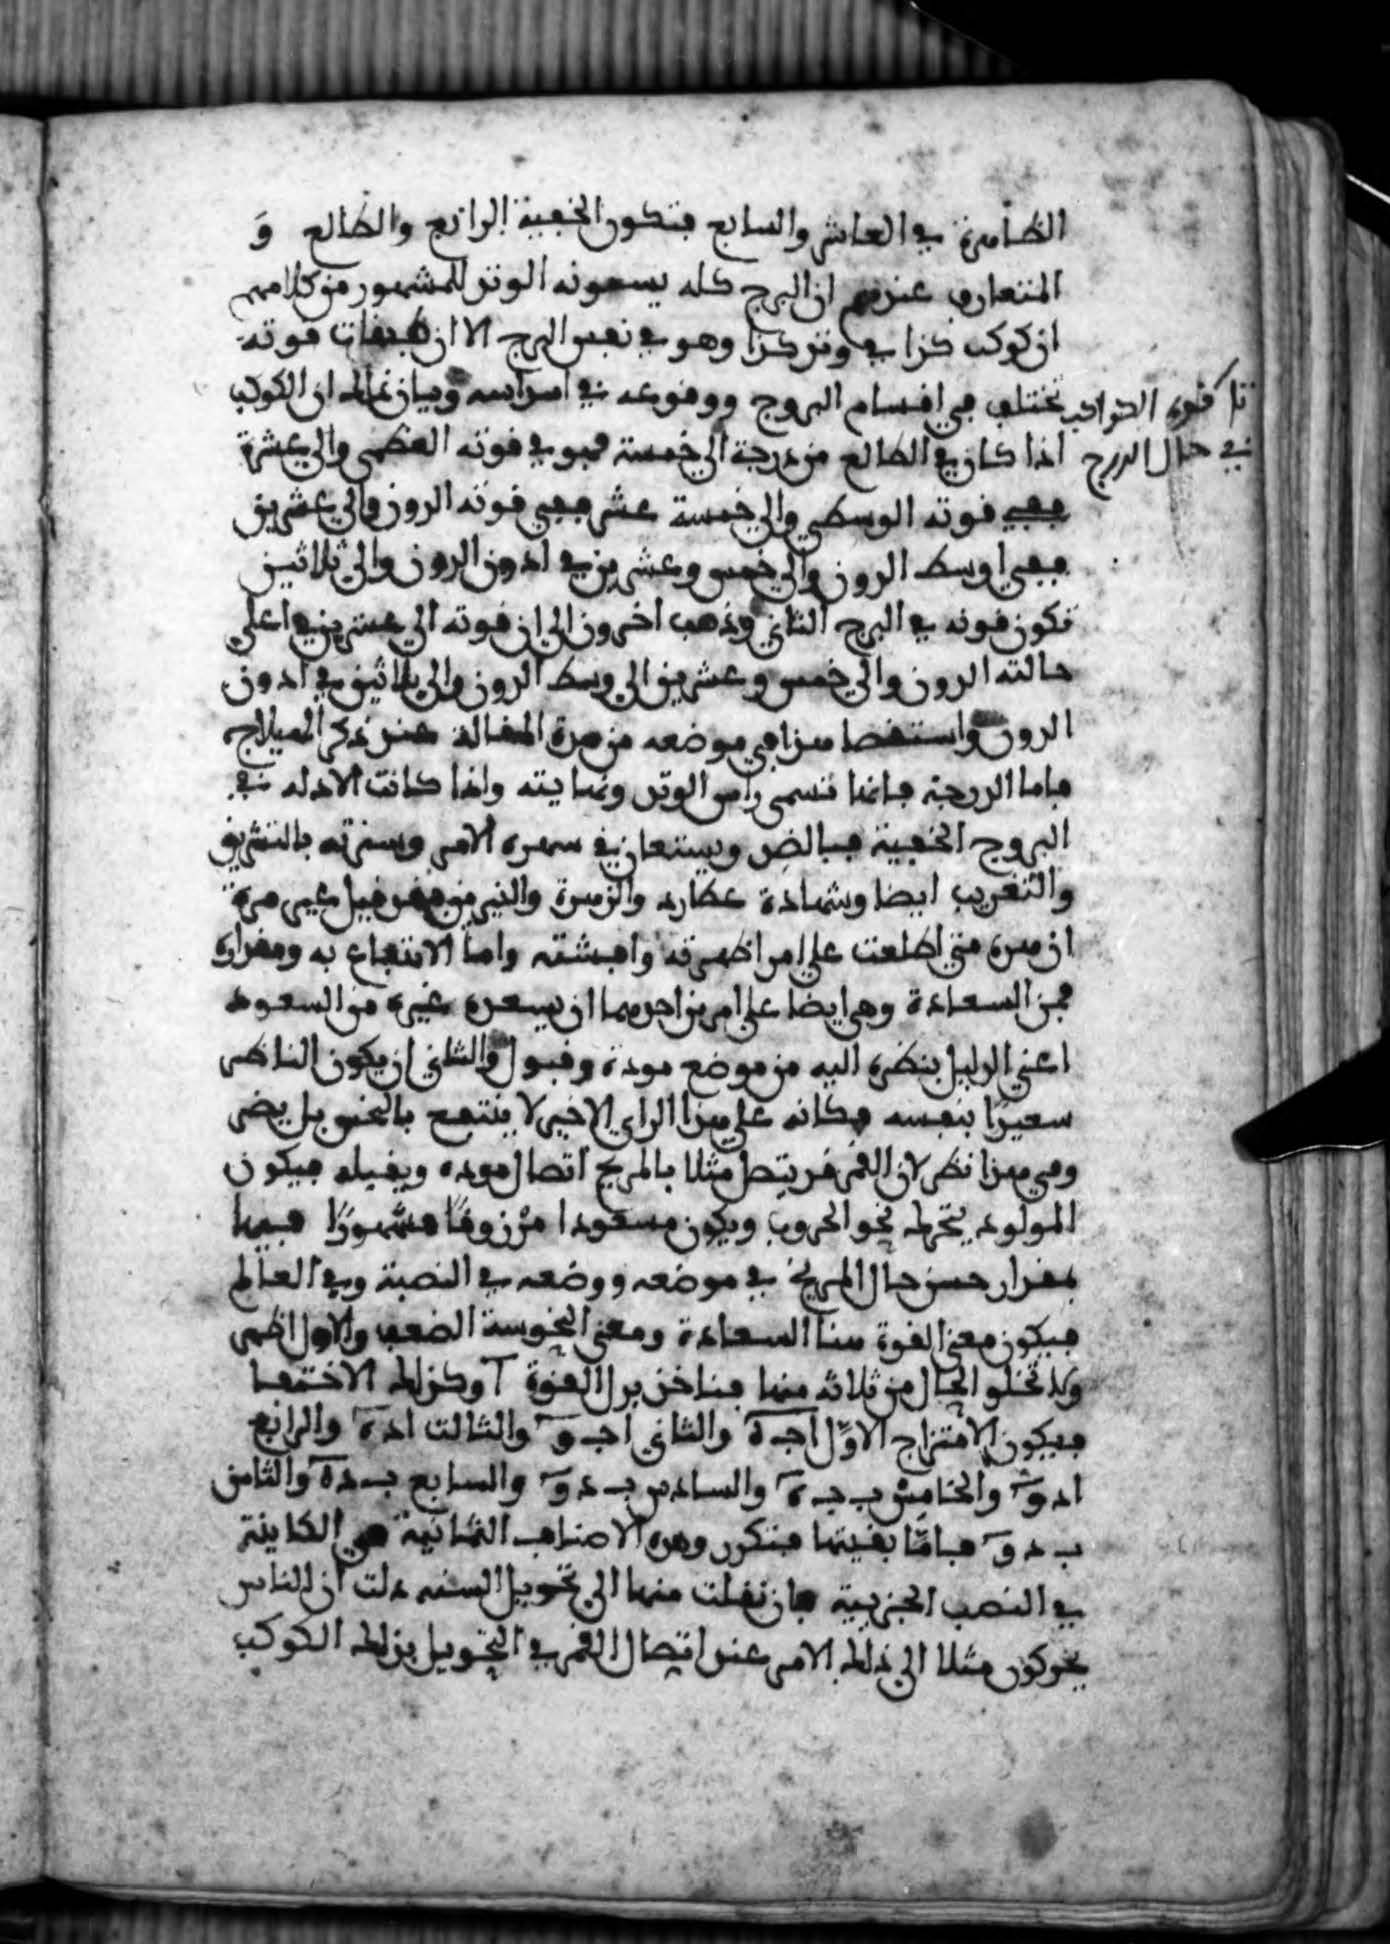 الظاهرة في العاشر والسابع فتكون الخفية الرابع والطالع و
المتعارف عندهم ان البرج كله يسمونه الوتد للمشهور من كلامهم
ان كوكب كذا في وتد كذا وهو في نفس البرج الا ان طبقات قوته
تختلف في اقسام البروج ووقوعه في اسداسه وبيان ذالك ان الكوكب
قوة الكواكب
في حال الدرج
اذا كان في الطالع من درجة الى خمسة فهو في قوته العظمى والى عشرة
ففي قوته الوسطى والى خمسة عشر ففي قوته الدون والى عشرين
ففي اوسط الدون والى خمس وعشرين في ادون الدون والى ثلاثين
تكون قوته في البرج الثاني وذهب اخرون الى ان قوته الى عشرين في اعلى
حالته الدون والى خمس وعشرين الى وسط الدون والى ثلاثين في ادون
الدون واستقصا هذا في موضعه من هذه المقالة عند ذكر الهيلاج
فاما الدرجة فانها تسمى راس الوتد ونهايته واذا كانت الادله في
البروج الخفية فبالضد ويستعان في شهرة الامر وسترته بالتشريق
والتغريب ايضا وشهادة عطارد والزهرة والنير من فقد قيل عن هذه
ان هذه متى اطلعت على امر اظهرته وافشته واما الانتفاع به ومقداره
فمن السعادة وهي ايضا على امرين احدهما ان يسعده غيره من السعود
اعني الدليل بنظره اليه من موضع مودة وقبول والثاني ان يكون الناظر
سعيدًا بنفسه فكانه على هذا الراي الاخير لا ينتفع بالنحس بل يضر
وفي هذا نظر لان القمر قد يتصل مثلا بالمريخ اتصال مودة ويقبله فيكون
المولود يتحرك نحو الحروب ويكون مسعودا مرزوقًا مشهورًا فيها
بمقدار حسن حال المريخ في موضعه ووضعه في النصبة وفي العالم
فيكون معنى القوة هنا السعادة ومعنى النحوسة الضعف والاول اظهر
ولا تخلو الحال من ثلاثة منها فناخذ بدل القوة آ وكذلك الاختصا
فيكون الامتزاج الاول اجه والثاني اجو والثالث اده والرابع
ادو والخامس ب جه والسادس ب دو والسابع ب ده والثامن
ب دو فاما بقيتها فتكرر وهذه الاصناف الثمانية هي الكاينة
في النصب الجزيية فان نقلت منها الى تحويل السنه دلت ان الناس
يتحركون مثلا الى ذلك الامر عند اتصال القمر في التحويل بذلك الكوكب